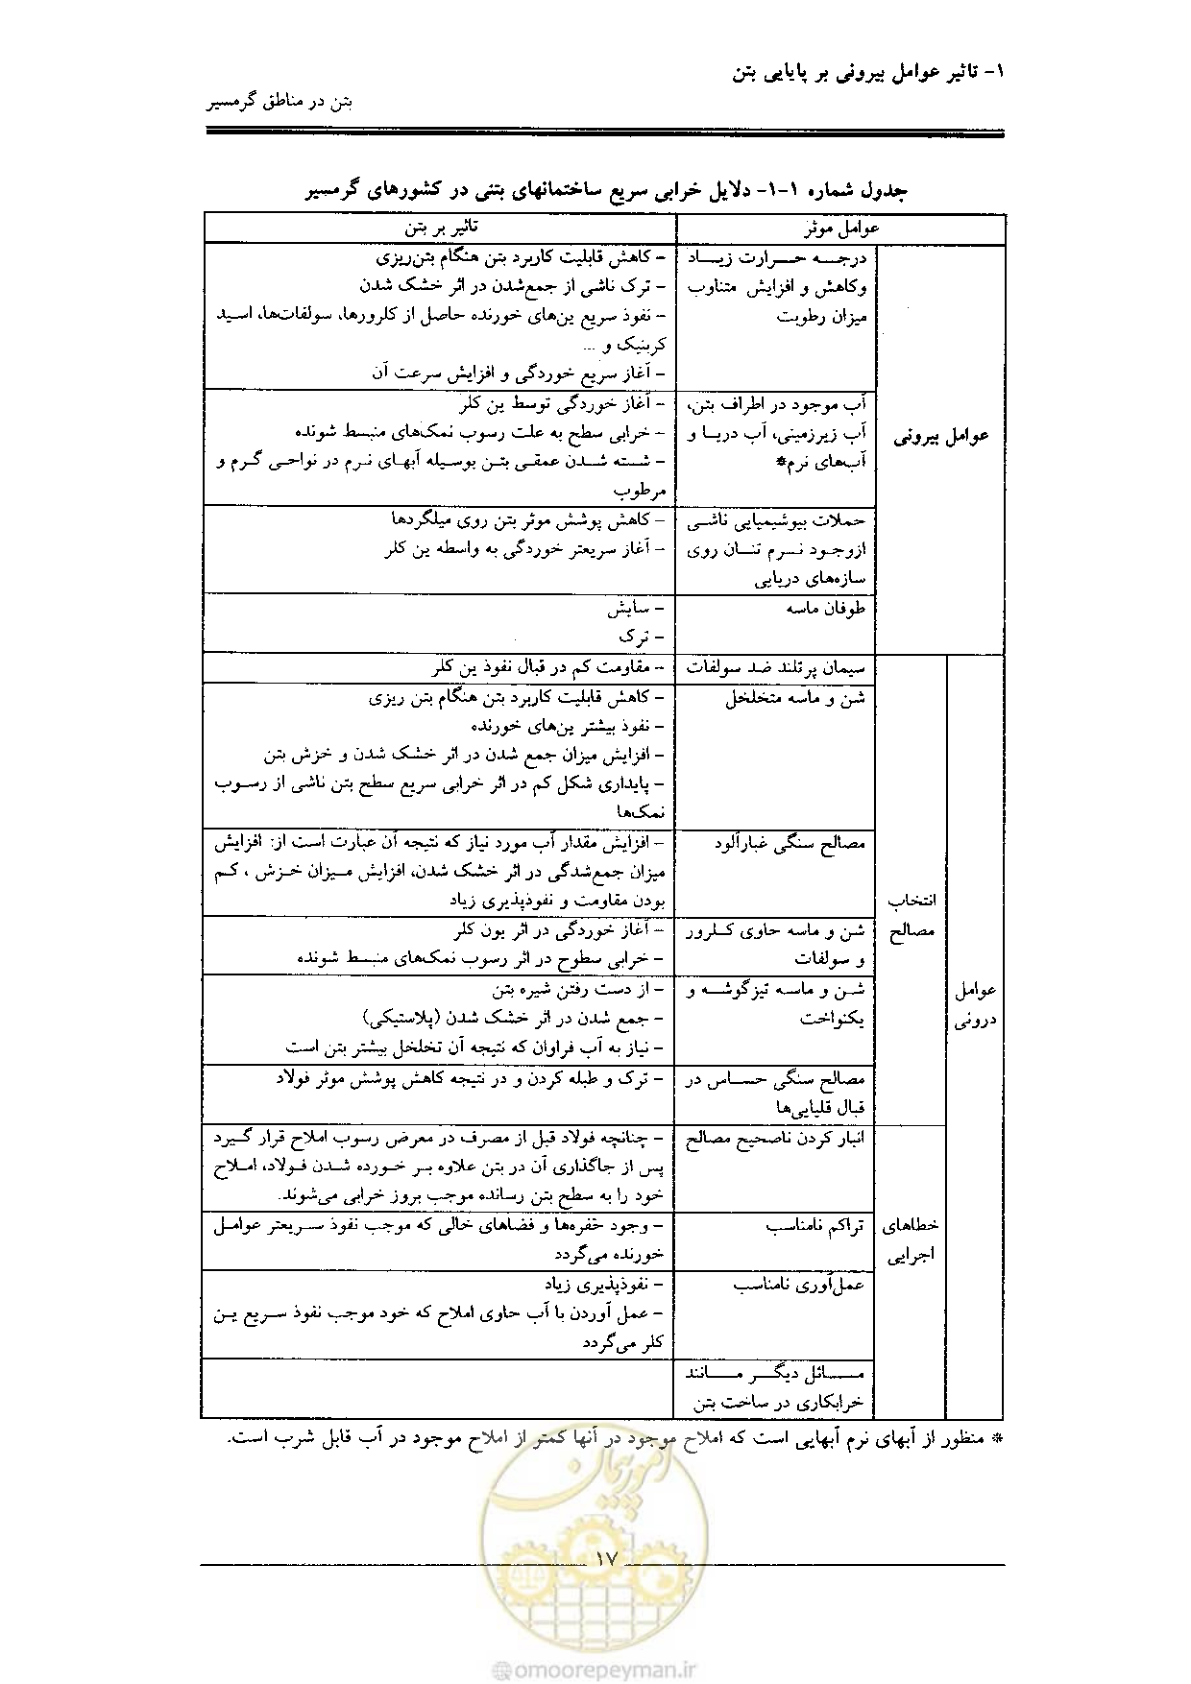 ۱- تاثیر عوامل بیرونی بر پایایی بتن
بتن در مناطق گرمسیر
جدول شماره ۱-۱- دلایل خرابی سریع ساختمانهای بتنی در کشورهای گرمسیر
عوامل موثر
تاثیر بر بتن
عوامل بیرونی
درجه حرارت زیاد
وکاهش و افزایش متناوب
میزان رطوبت
- کاهش قابلیت کاربرد بتن هنگام بتن‌ریزی
- ترک ناشی از جمع‌شدن در اثر خشک شدن
- نفوذ سریع ین‌های خورنده حاصل از کلرورها، سولفات‌ها، اسید
کربنیک و ...
- آغاز سریع خوردگی و افزایش سرعت آن
آب موجود در اطراف بتن،
آب زیرزمینی، آب دریا و
آب‌های نرم*
- آغاز خوردگی توسط ین کلر
- خرابی سطح به علت رسوب نمک‌های منبسط شونده
- شسته شدن عمقی بتن بوسیله آبهای نرم در نواحی گرم و
مرطوب
حملات بیوشیمیایی ناشی
ازوجود نرم تنان روی
سازه‌های دریایی
- کاهش پوشش موثر بتن روی میلگردها
- آغاز سریعتر خوردگی به واسطه ین کلر
طوفان ماسه
- سایش
- ترک
عوامل
درونی
انتخاب
مصالح
سیمان پرتلند ضد سولفات
- مقاومت کم در قبال نفوذ ین کلر
شن و ماسه متخلخل
- کاهش قابلیت کاربرد بتن هنگام بتن ریزی
- نفوذ بیشتر ین‌های خورنده
- افزایش میزان جمع شدن در اثر خشک شدن و خزش بتن
- پایداری شکل کم در اثر خرابی سریع سطح بتن ناشی از رسوب
نمک‌ها
مصالح سنگی غبارآلود
- افزایش مقدار آب مورد نیاز که نتیجه آن عبارت است از: افزایش
میزان جمع‌شدگی در اثر خشک شدن، افزایش میزان خزش ، کم
بودن مقاومت و نفوذپذیری زیاد
شن و ماسه حاوی کلرور
و سولفات
- آغاز خوردگی در اثر یون کلر
- خرابی سطوح در اثر رسوب نمک‌های منبسط شونده
شن و ماسه تیزگوشه و
یکنواخت
- از دست رفتن شیره بتن
- جمع شدن در اثر خشک شدن (پلاستیکی)
- نیاز به آب فراوان که نتیجه آن تخلخل بیشتر بتن است
مصالح سنگی حساس در
قبال قلیایی‌ها
- ترک و طبله کردن و در نتیجه کاهش پوشش موثر فولاد
خطاهای
اجرایی
انبار کردن ناصحیح مصالح
- چنانچه فولاد قبل از مصرف در معرض رسوب املاح قرار گیرد
پس از جاگذاری آن در بتن علاوه بر خورده شدن فولاد، املاح
خود را به سطح بتن رسانده موجب بروز خرابی می‌شوند.
تراکم نامناسب
- وجود حفره‌ها و فضاهای خالی که موجب نفوذ سریعتر عوامل
خورنده می‌گردد
عمل‌آوری نامناسب
- نفوذپذیری زیاد
- عمل آوردن با آب حاوی املاح که خود موجب نفوذ سریع ین
کلر می‌گردد
مسائل دیگر مانند
خرابکاری در ساخت بتن
* منظور از آبهای نرم آبهایی است که املاح موجود در آنها کمتر از املاح موجود در آب قابل شرب است.
امور پیمان
۱۷
@omoorepeyman.ir